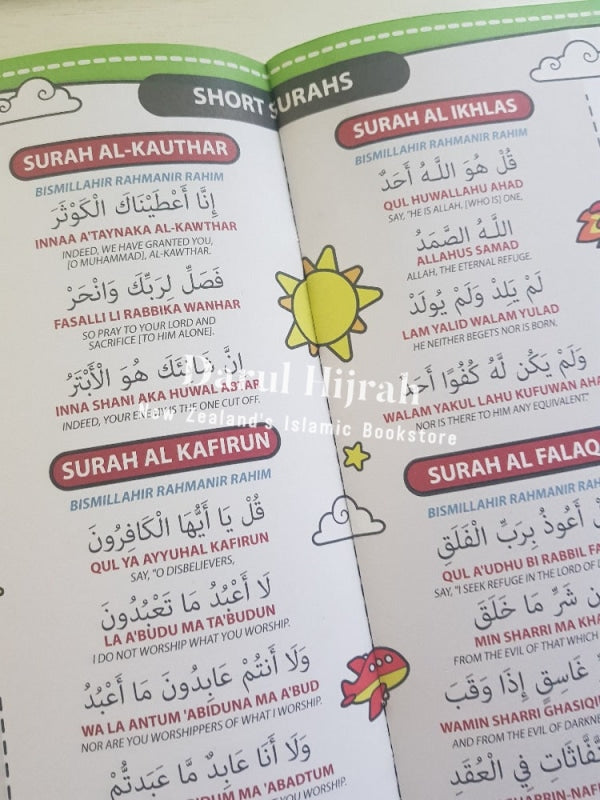 SHORT SURAHS
SURAH AL-KAUTHAR
BISMILLAHIR RAHMANIR RAHIM
إِنَّا أَعْطَيْنَاكَ الْكَوْثَرَ
INNAA A'TAYNAKA AL-KAWTHAR
INDEED, WE HAVE GRANTED YOU,
[O MUHAMMAD], AL-KAWTHAR.
فَصَلِّ لِرَبِّكَ وَانْحَرْ
FASALLI LI RABBIKA WANHAR
SO PRAY TO YOUR LORD AND
SACRIFICE [TO HIM ALONE].
إِنَّ شَانِئَكَ هُوَ الْأَبْتَرُ
INNA SHANI AKA HUWAL ABTAR
INDEED, YOUR ENEMY IS THE ONE CUT OFF.
SURAH AL KAFIRUN
BISMILLAHIR RAHMANIR RAHIM
قُلْ يَا أَيُّهَا الْكَافِرُونَ
QUL YA AYYUHAL KAFIRUN
SAY, "O DISBELIEVERS,
لَا أَعْبُدُ مَا تَعْبُدُونَ
LA A'BUDU MA TA'BUDUN
I DO NOT WORSHIP WHAT YOU WORSHIP.
وَلَا أَنتُمْ عَابِدُونَ مَا أَعْبُدُ
WA LA ANTUM 'ABIDUNA MA A'BUD
NOR ARE YOU WORSHIPPERS OF WHAT I WORSHIP.
وَلَا أَنَا عَابِدٌ مَّا عَبَدتُّمْ
MA 'ABADTUM
YOU WORSHIP.
SURAH AL IKHLAS
BISMILLAHIR RAHMANIR RAHIM
قُلْ هُوَ اللَّهُ أَحَدٌ
QUL HUWALLAHU AHAD
SAY, "HE IS ALLAH, [WHO IS] ONE,
اللَّهُ الصَّمَدُ
ALLAHUS SAMAD
ALLAH, THE ETERNAL REFUGE.
لَمْ يَلِدْ وَلَمْ يُولَدْ
LAM YALID WALAM YULAD
HE NEITHER BEGETS NOR IS BORN.
وَلَمْ يَكُن لَّهُ كُفُوًا
WALAM YAKUL LAHU KUFUWAN
NOR IS THERE TO HIM ANY EQUIVALENT."
SURAH AL FALAQ
BISMILLAHIR RAHMANIR
أَعُوذُ بِرَبِّ الْفَلَقِ
QUL A'UDHU BI RABBIL
SAY, "I SEEK REFUGE IN THE LORD OF
شَرِّ مَا خَلَقَ
MIN SHARRI MA
FROM THE EVIL OF THAT WHICH
غَاسِقٍ إِذَا وَقَبَ
WAMIN SHARRI
AND FROM THE EVIL OF
فِي الْعُقَدِ
Darul Hijrah
New Zealand's Islamic Bookstore